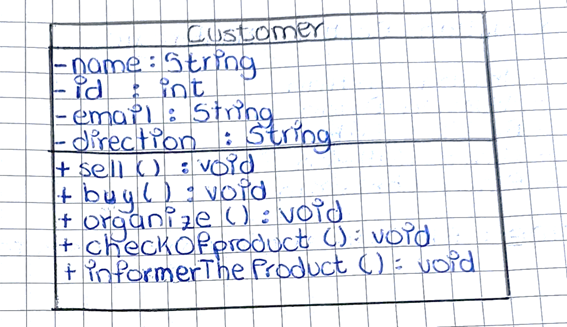 Customer
-name: String
-id : int
-email: String
-direction : String
+ sell () : void
+ buy() : void
+ organize () : void
+ checkOfproduct () : void
+ informerTheProduct () : void